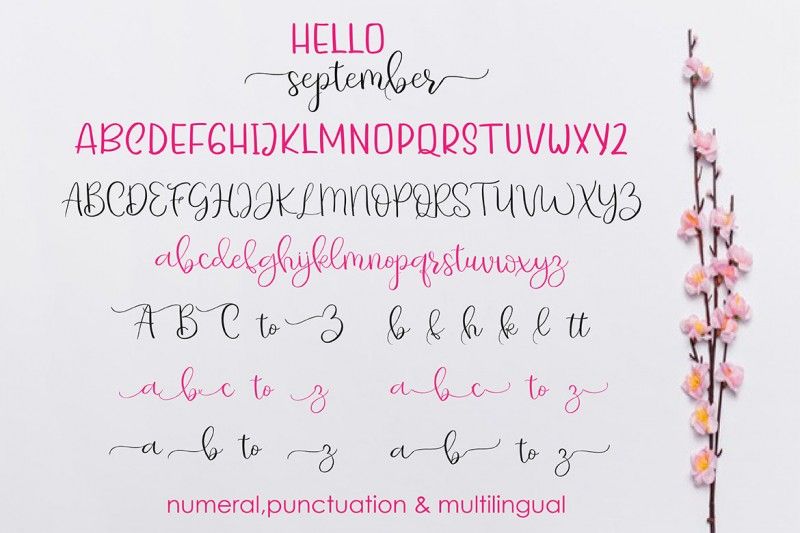 HELLO
september
ABCDEFGHIJKLMNOPQRSTUVWXYZ
ABCDEFGHIJKLMNOPQRSTUVWXYZ
abcdefghijklmnopqrstuvwxyz
A B C to Z b f h k l tt
a b c to z a b c to z
a b to z a b to z
numeral,punctuation & multilingual